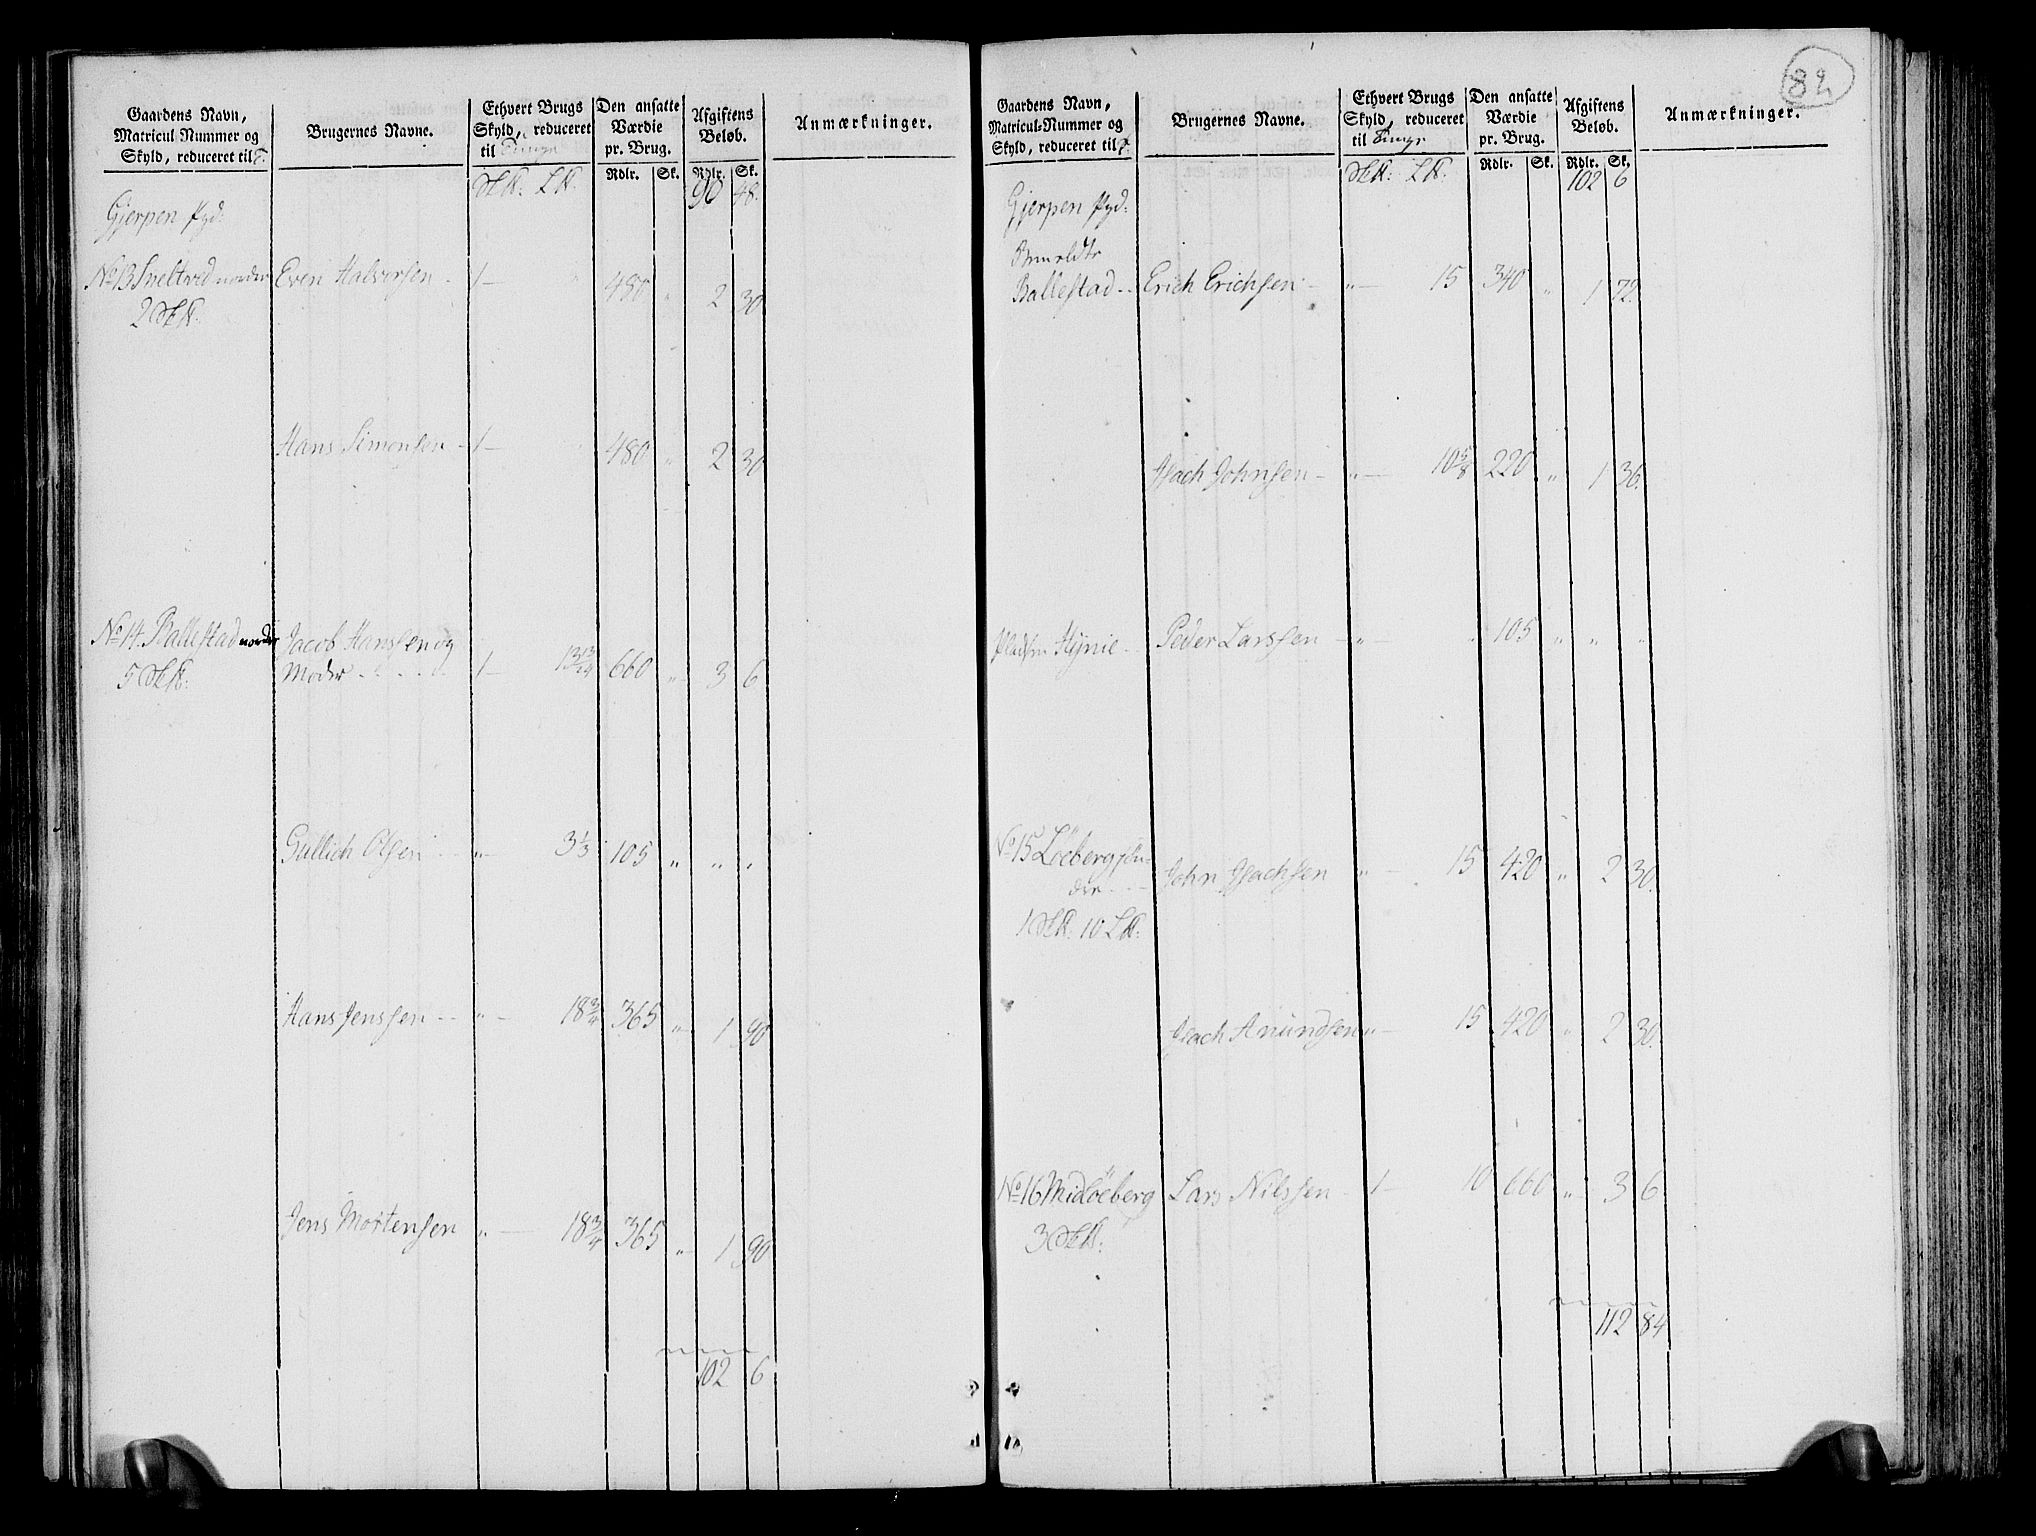 82
Gaardens Navn,
Matricul-Nummer og
Skyld, reduceret til T.
Brugernes Navne.
Ethvert Brugs
Skyld, reduceret
til Tunge
Den ansatte
Værdie
pr. Brug.
Afgiftens
Beløb.
Anmærkninger.
Rdlr. Sk. Rdlr. Sk.
90 48.
Gjerpen Pgd:
No 13 Sneltved nordre Even Halvorsen - 1 - " 480 " 2 30
2 Sk℔:
Hans Simonsen - 1 - " 480 " 2 30
No 14. Ballestad nordre Jacob Hanssen og
5 Sk℔: Moder . . . . 1 - 13 13/24 660 " 3 6
Gullich Olsen - - " - 3 1/3 105 " " "
Hans Jenssen - - " - 18 3/4 365 " 1 90
Jens Mortensen " - 18 3/4 365 " 1 90
102 6
Gaardens Navn,
Matricul-Nummer og
Skyld, reduceret til T.
Brugernes Navne.
Ethvert Brugs
Skyld, reduceret
til Tunge
Den ansatte
Værdie
pr. Brug.
Afgiftens
Beløb.
Anmærkninger.
Sk℔: L℔: Rdlr. Sk. Rdlr. Sk.
102 6
Gjerpen Pgd:
Ballestad - - Erich Erichsen - " - 15 340 " 1 72.
Isach Johnsen - " - 10 5/8 220 " 1 36.
Pladsen Hynie - - Peder Larssen - " - " 105 " " "
No 15 Löeberg søn-
dre - - - John Isachsen " - 15 420 " 2 30.
1 Sk℔: 10 L℔:
Isach Anundsen " - 15 420 " 2 30.
No 16 Mid Löeberg Lars Nilssen - 1 - 10 660 " 3 6
3 Sk℔:
112 84